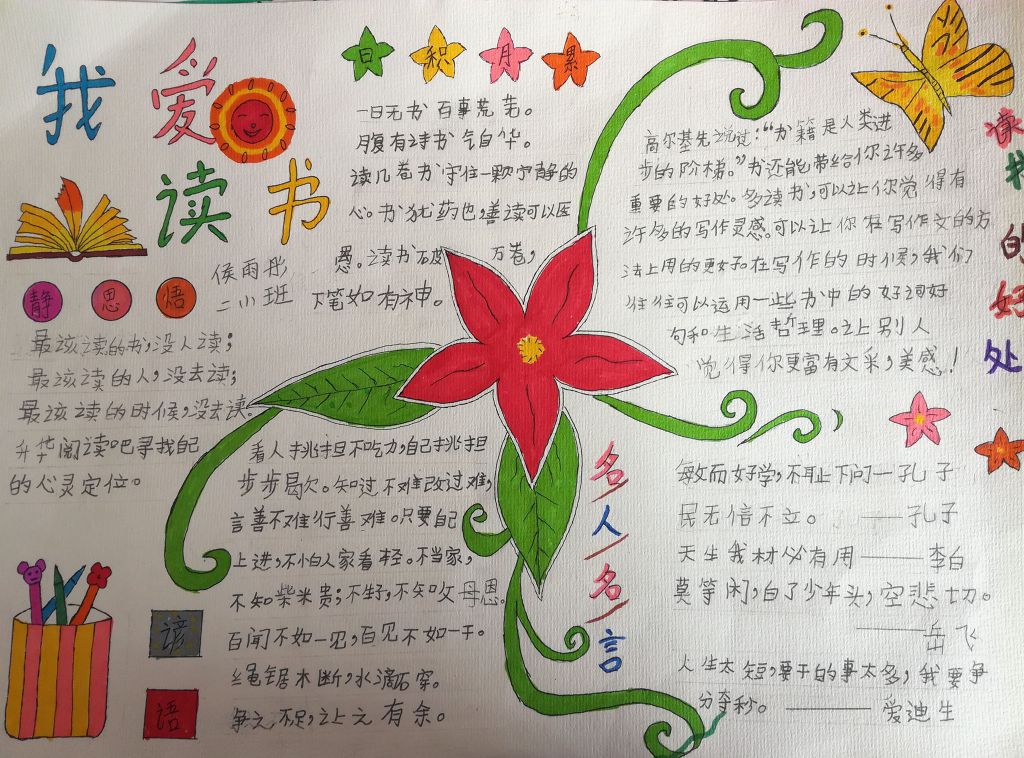 我爱
读书
侯雨彤
二小班
日积月累
一日无书 百事荒芜。
腹有诗书气自华。
读几卷书守住一颗宁静的
心。书犹药也,善读可以医
愚。读书破 万卷,
下笔如有神。
静思悟
最该读的书,没人读;
最该读的人,没去读;
最该读的时候,没去读。
升华阅读吧寻找自己
的心灵定位。
谚
语
看人挑担不吃力,自己挑担
步步曷欠。知过不难改过难,
言善不难行善难。只要自己
上进,不小白人家看轻。不当家,
不知柴米贵;不生子,不知父母恩。
百闻不如一见,百见不如一干。
绳锯木断,水滴石穿。
争之不足,让之有余。
读我的好处
高尔基先说过:“书籍是人类进
步的阶梯。”书还能带给你许多
重要的好处。多读书,可以让你觉得有
许多的写作灵感。可以让你在写作文的方
法上用的更好。在写作的时候,我们
往往可以运用一些书中的好词好
句和生活哲理。让别人
觉得你更富有文采,美感!
名人名言
敏而好学,不耻下问一孔子
民无信不立。——孔子
天生我材必有用——李白
莫等闲,白了少年头,空悲切。
——岳飞
人生太短,要干的事太多,我要争
分夺秒。——爱迪生